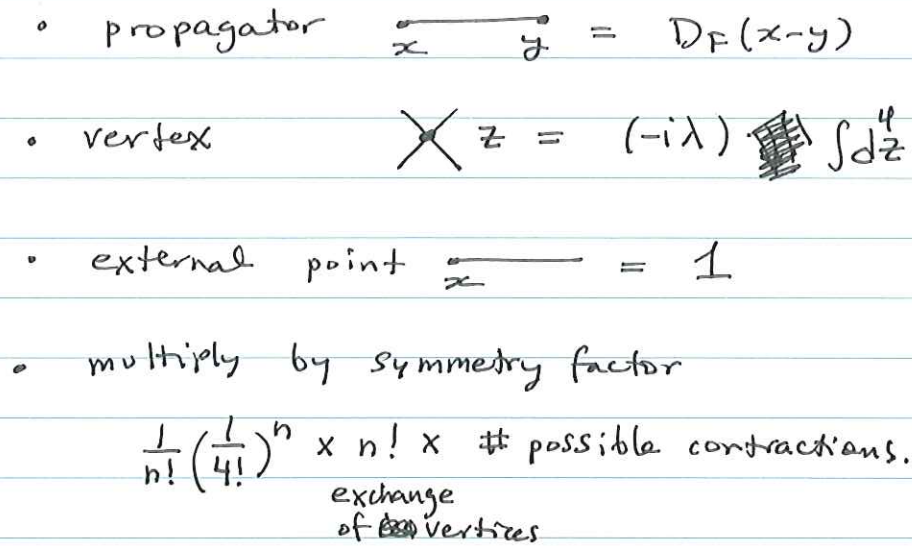 • propagator x y = D_F(x-y)
• vertex z = (-iλ) ∫d⁴z
• external point x = 1
• multiply by symmetry factor
1/n! (1/4!)ⁿ x n! x # possible contractions.
exchange
of vertices